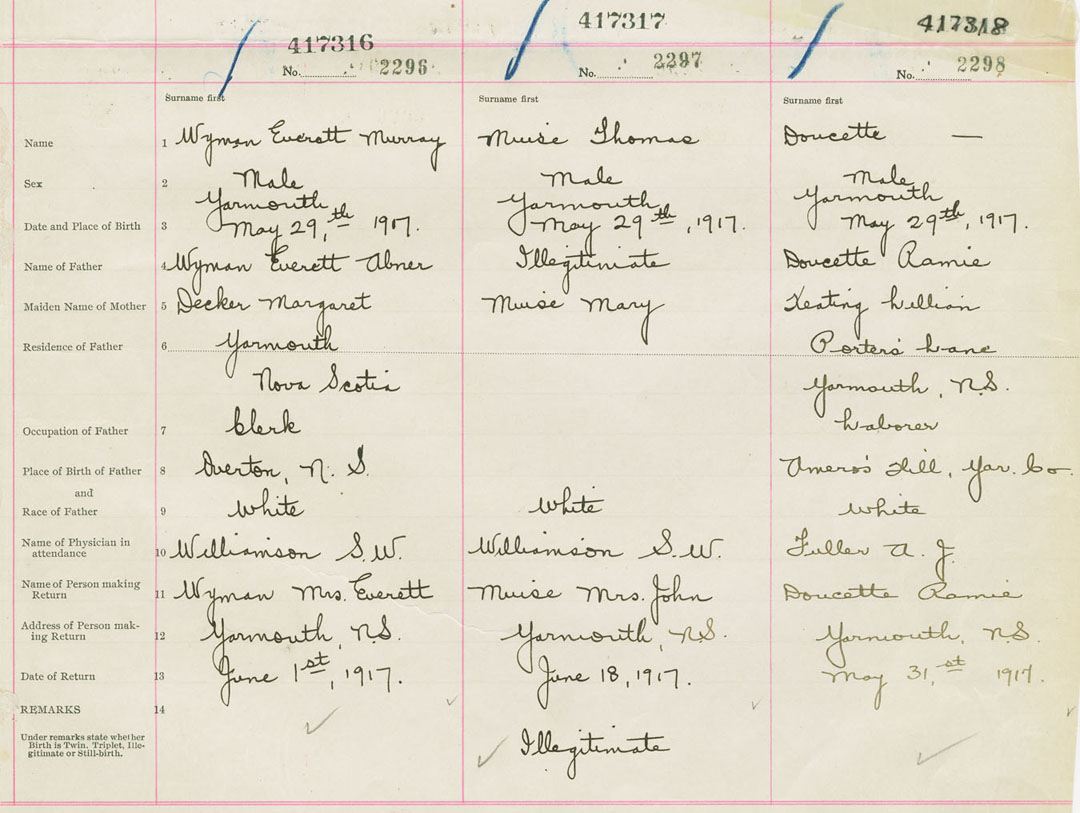 417316 417317 417318
No. 2296 No. 2297 No. 2298
Surname first Surname first Surname first
Name 1 Wyman Everett Murray Muise Thomas Doucette —
Sex 2 Male Male Male
Yarmouth Yarmouth Yarmouth
Date and Place of Birth 3 May 29,th 1917. May 29th, 1917. May 29th, 1917.
Name of Father 4 Wyman Everett Abner Illegitimate Doucette Ramie
Maiden Name of Mother 5 Decker Margaret Muise Mary Keating Lillian
Residence of Father 6 Yarmouth Porter's Lane
Nova Scotia Yarmouth, N.S.
Occupation of Father 7 Clerk Laborer
Place of Birth of Father 8 Overton, N. S. Amero's Hill, Yar. Co.
and
Race of Father 9 White White White
Name of Physician in
attendance 10 Williamson S.W. Williamson S.W. Fuller A. J.
Name of Person making
Return 11 Wyman Mrs. Everett Muise Mrs. John Doucette Ramie
Address of Person mak-
ing Return 12 Yarmouth, N.S. Yarmouth, N.S. Yarmouth, N.S.
Date of Return 13 June 1st, 1917. June 18, 1917. May 31,st 1917.
REMARKS 14
Under remarks state whether
Birth is Twin. Triplet, Ille-
gitimate or Still-birth. Illegitimate